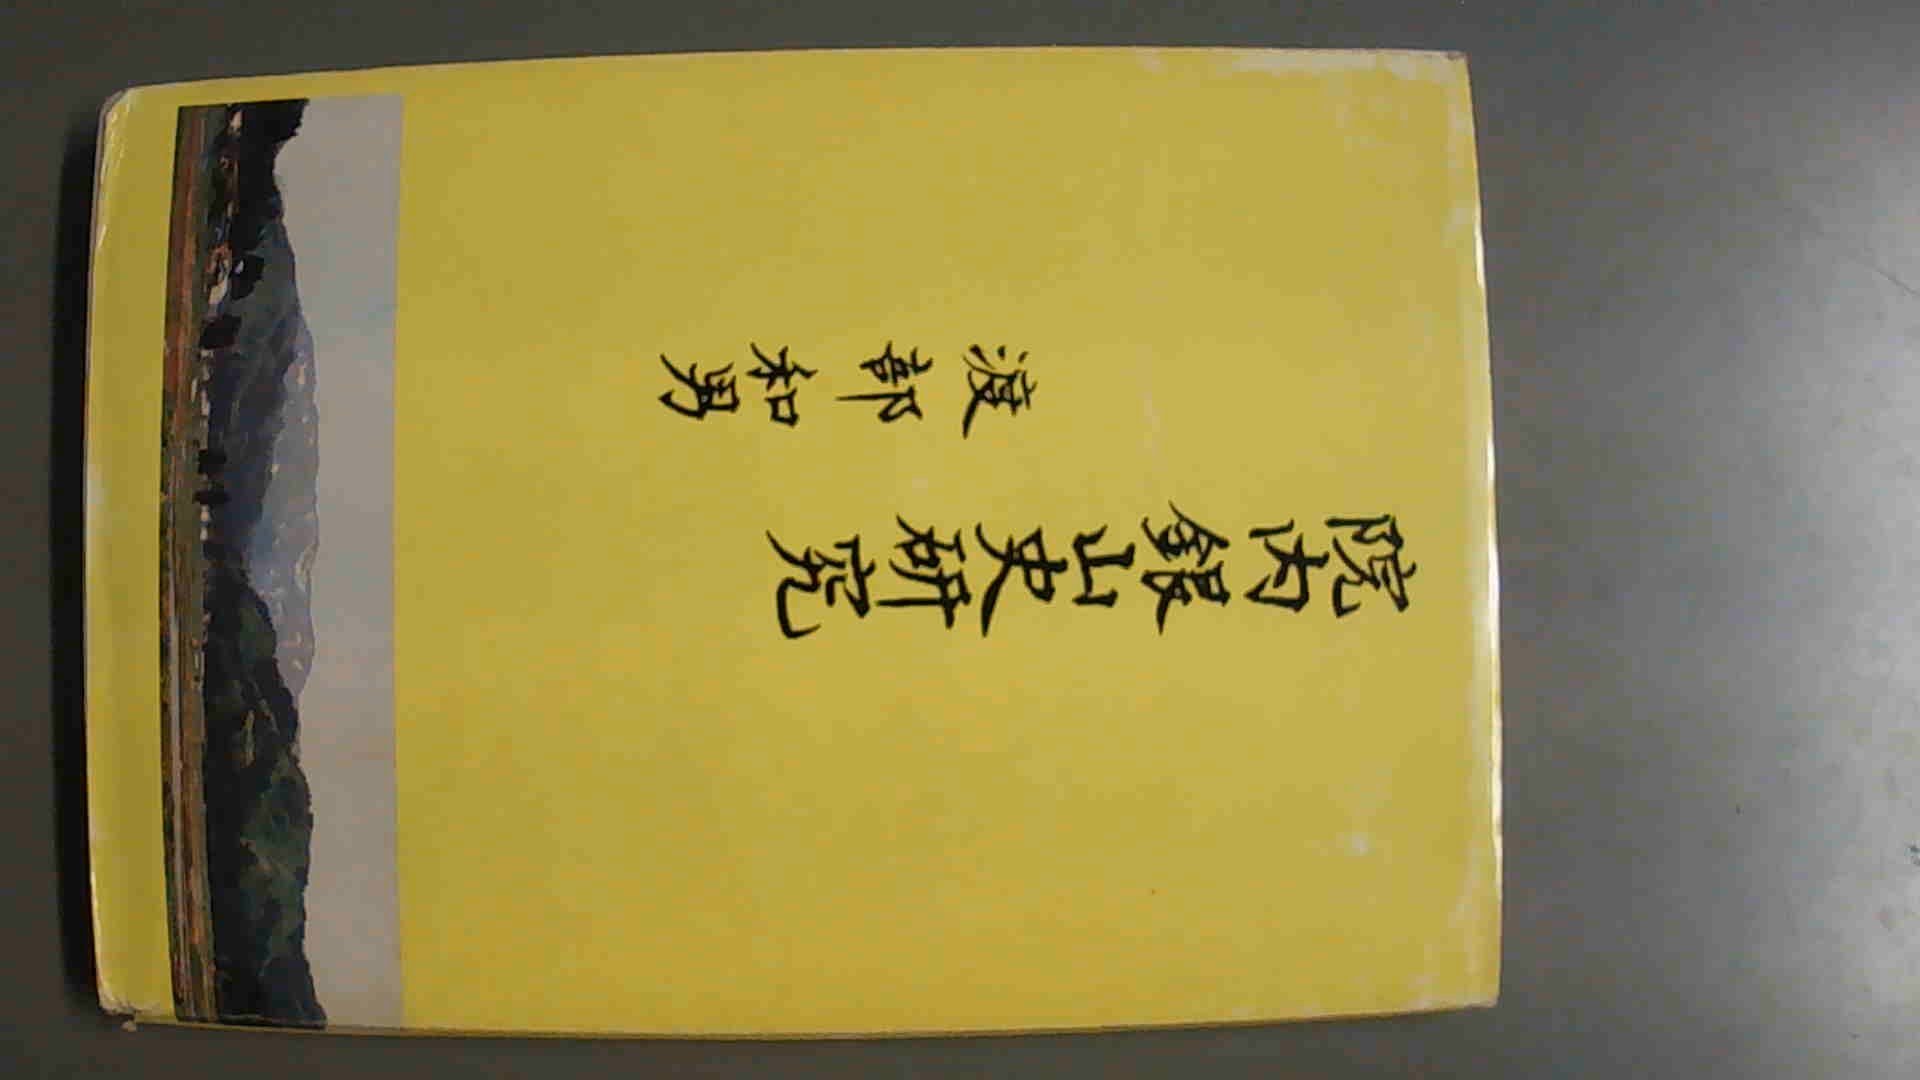 院内銀山史研究
渡部和男